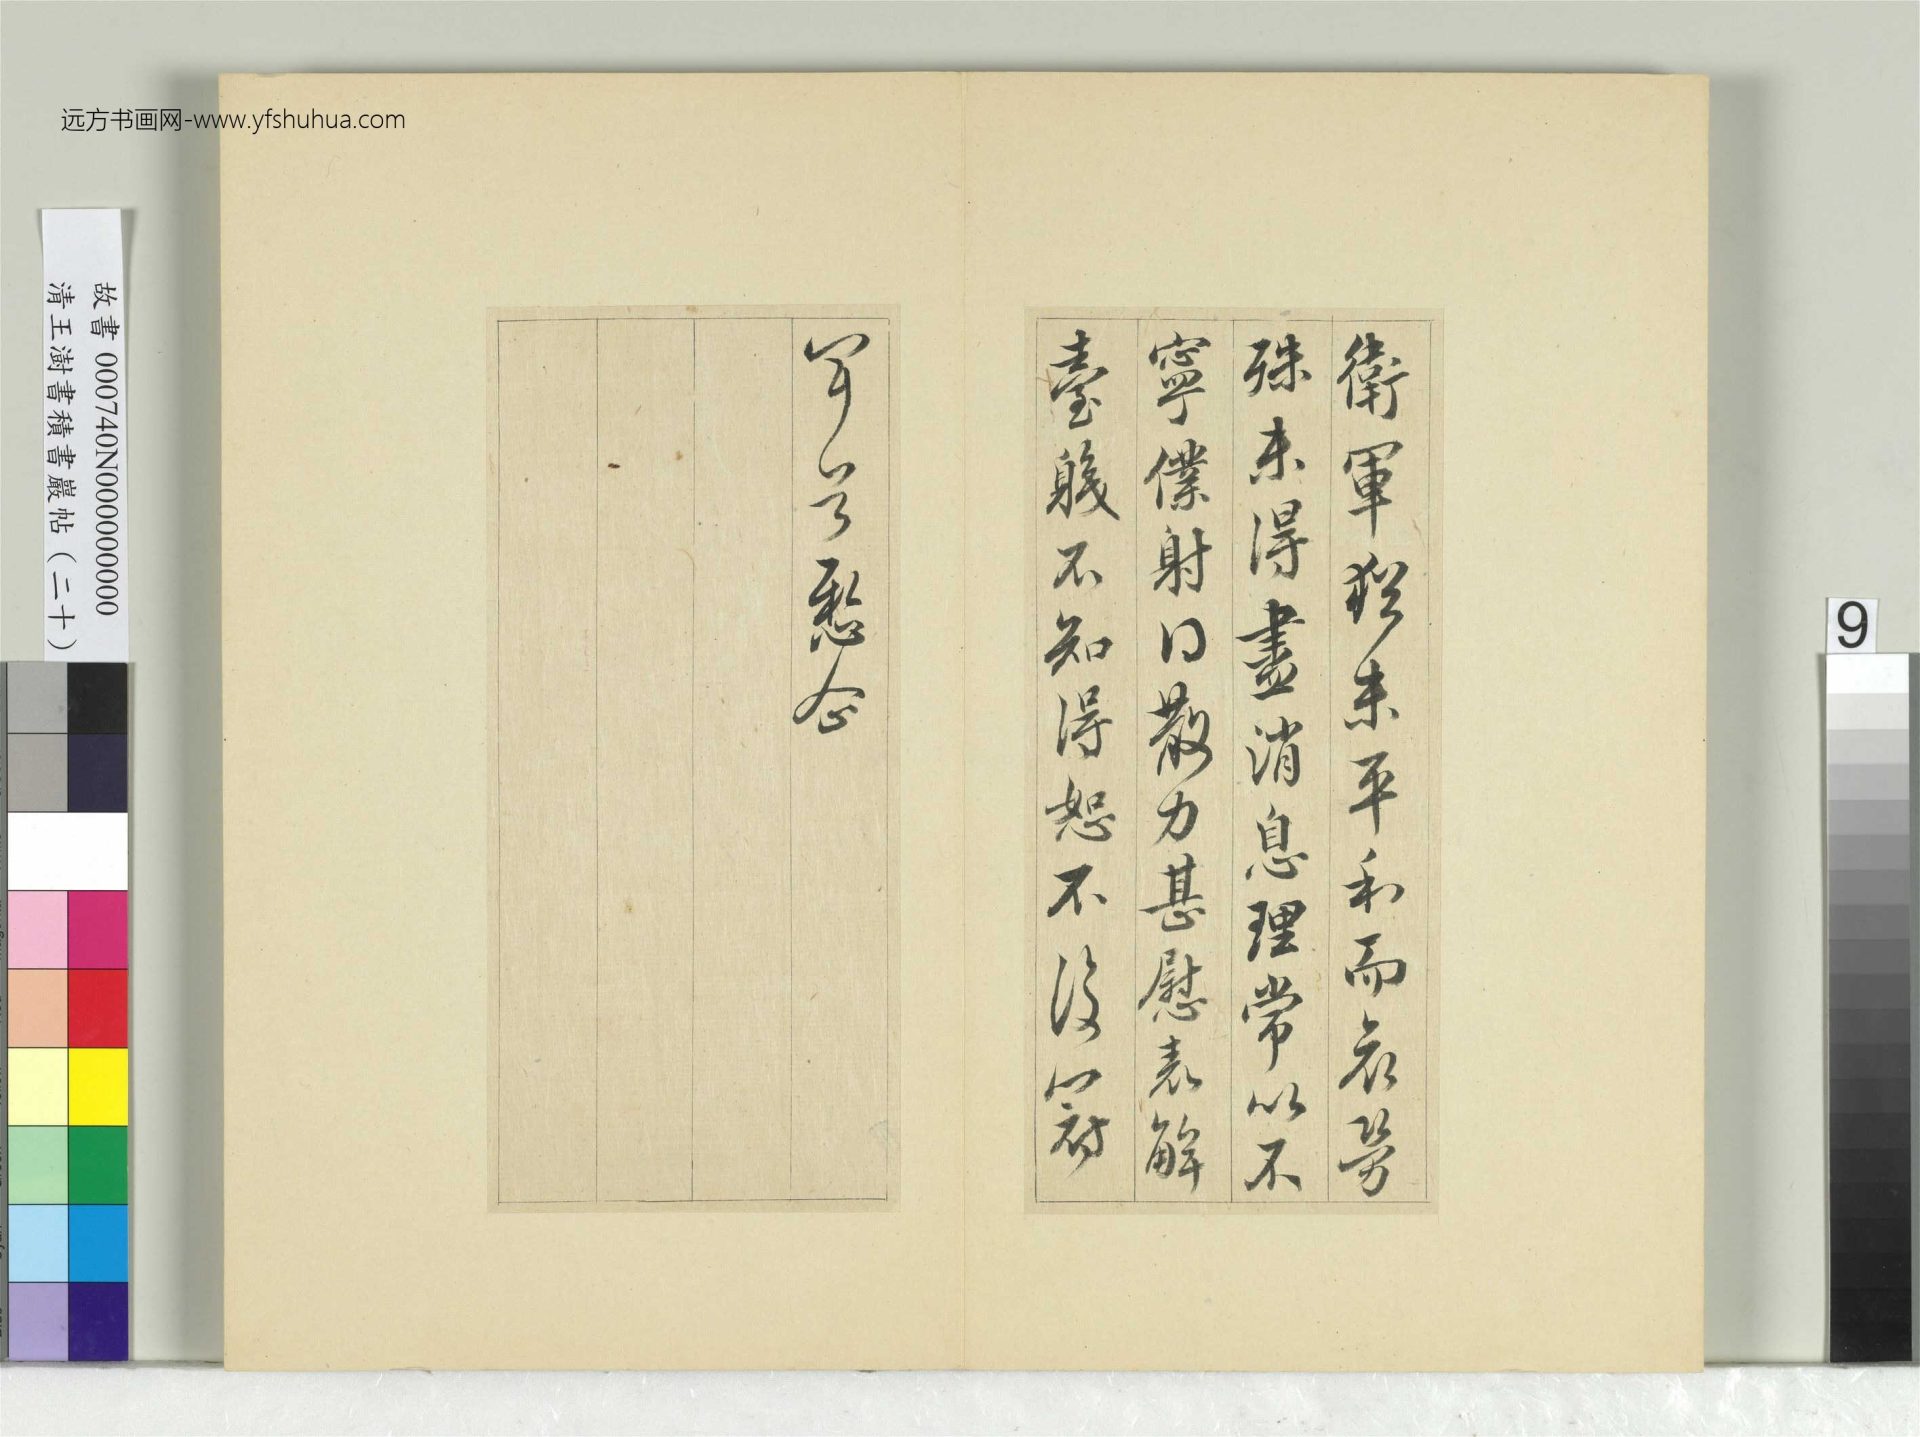 远方书画网-www.yfshuhua.com
故書 000740N000000000
清王澍書積書巖帖(二十)
9
衛軍猶未平和而哀勞
殊未得盡消息理常以不
寧僕射散力甚慰表解
臺不知得恕不復
愁念